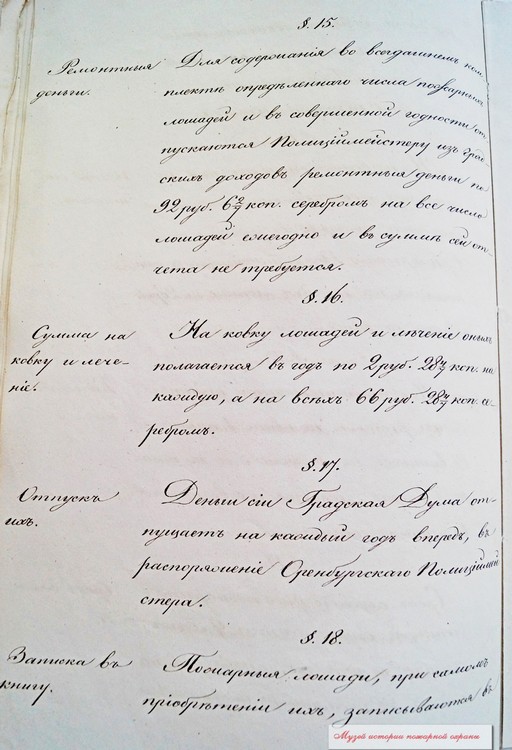 §. 15.
Ремонтныя
деньги.
Для содержанія во всегдашнемъ ком
плектѣ опредѣленнаго числа пожарныхъ
лошадей и въ совершенной годности от
пускаются Полиціймейстеру изъ град
скихъ доходовъ ремонтныя деньги по
92 руб. 6 2/7 коп. серебромъ на все число
лошадей ежегодно и въ суммѣ сей от
чета не требуется.
§. 16.
Сумма на
ковку и лече-
ніе.
На ковку лошадей и лѣченіе оныхъ
полагается въ годъ по 2 руб. 28 4/7 коп. на
каждую, а на всѣхъ 66 руб. 28 4/7 коп. се
ребромъ.
§. 17.
Отпускъ
ихъ.
Деньги сіи Градская Дума от
пущаетъ на каждый годъ впередъ, въ
распоряженіе Оренбургскаго Полиціймей
стера.
§. 18.
Записка въ
книгу.
Пожарныя лошади, при самомъ
пріобрѣтеніи ихъ, записываются въ
Музей истории пожарной охраны